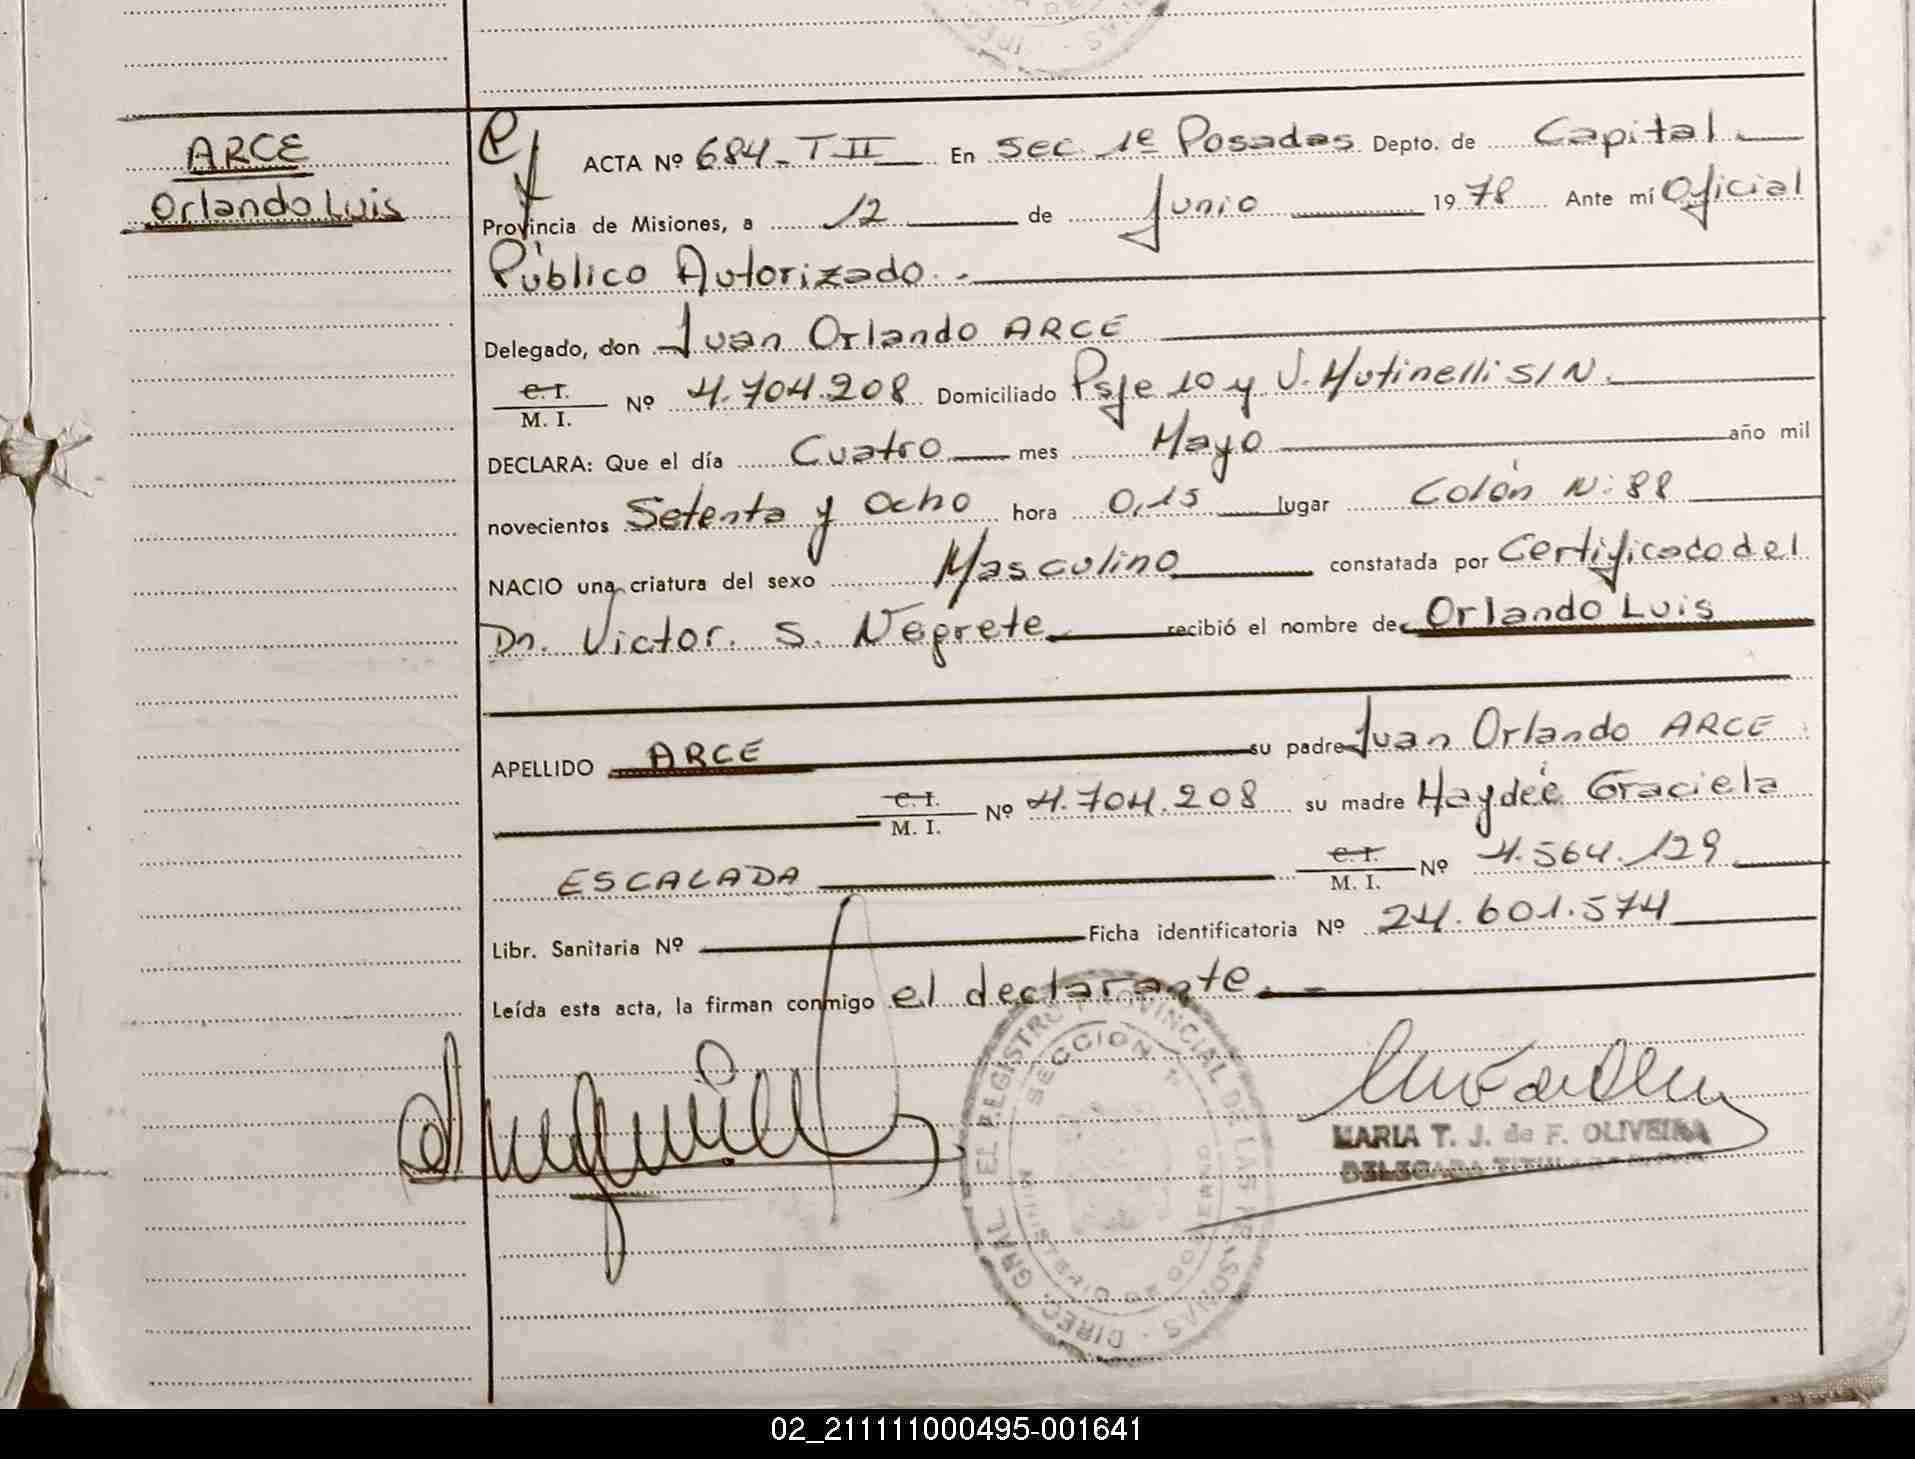 ARCE
Orlando Luis
ACTA Nº 684-T II En Sec. 1º Posadas Depto. de Capital
Provincia de Misiones, a 12 de Junio 1978 Ante mí Oficial
Público Autorizado.-
Delegado, don Juan Orlando ARCE
C. I.
M. I. Nº 4.704.208 Domiciliado Psje 10 y V. Mutinelli S/N.
DECLARA: Que el día Cuatro mes Mayo año mil
novecientos Setenta y Ocho hora 0,15 lugar Colón N: 88
NACIO una criatura del sexo Masculino constatada por Certificado del
Dr. Victor. S. Negrete recibió el nombre de Orlando Luis
APELLIDO ARCE su padre Juan Orlando ARCE
C. I.
M. I. Nº 4.704.208 su madre Haydée Graciela
ESCALADA C. I.
M. I. Nº 4.564.129
Libr. Sanitaria Nº Ficha identificatoria Nº 24.601.574
Leída esta acta, la firman conmigo el declarante.-
DIREC. GRAL. EL REGISTRO PROVINCIAL DE LAS PERSONAS
SECCION 1ª
MINISTERIO DE GOBIERNO
MARIA T. J. de F. OLIVEIRA
DELEGADA TITULAR
02_211111000495-001641